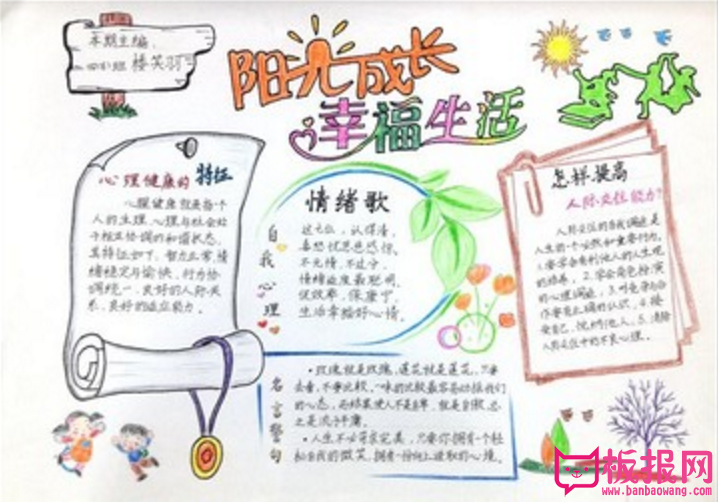 本期主编:
四(1)班 楼笑羽
阳光成长
幸福生活
心理健康的特征
心理健康就是指个
人的生理、心理与社会处
于相互协调的和谐状态,
其特征如下:智力正常,情
绪稳定与愉快,行为协
调统一,良好的人际关
系,良好的适应能力。
自我心理
情绪歌
认得清,
喜怒忧思悲恐惊。
不允情,不过分,
情绪适度最聪明。
促效率,保康宁,
生活幸福好心情。
怎样提高
人际交往能力?
人际交往的自我调适是
人生的一个必须和重要行为。
1.要学会有利他人的人生观
的培养。2.学会角色扮演
的心理调适。3.对竞争与合
作要有正确的认识。4.接
受自己,悦纳他人。5.清除
人际交往中的不良心理。
名言警句
·玫瑰就是玫瑰,莲花就是莲花,只要
去看,不要比较。一味的比较最容易动摇我们
的心态,而结果使人不是自卑,就是自傲,总
之是流于平庸。
·人生不必苛求完美,只要你拥有一个轻
松自我的微笑,拥有一份向上进取的心境。
板报网
www.banbaowang.com